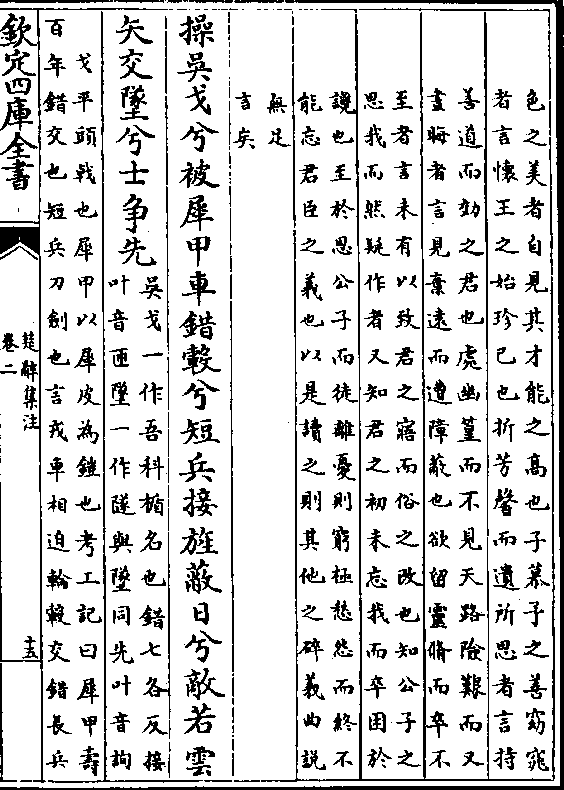 色之美者自見其才能之高也子慕予之善窈窕
者言懷王之始珍己也折芳馨而遺所思者言持
善道而効之君也處幽篁而不見天路險艱而又
晝晦者言見棄遠而遭障蔽也欲留靈脩而卒不
至者言未有以致君之寤而俗之改也知公子之
思我而然疑作者又知君之初未忘我而卒困於
讒也至於思公子而徒離憂則窮極愁怨而終不
能忘君臣之義也以是讀之則其他之碎義曲說
無足
言矣
操吳戈兮被犀甲車錯轂兮短兵接旌蔽日兮敵若雲
矢交墜兮士争先
吳戈一作吾科楯名也錯七各反接
叶音匝墜一作隧與墜同先叶音詢
戈平頭戟也犀甲以犀皮為鎧也考工記曰犀甲壽
百年錯交也短兵刀劍也言戎車相迫輪轂交錯長兵
欽定四庫全書
楚辭集注
卷二
十五